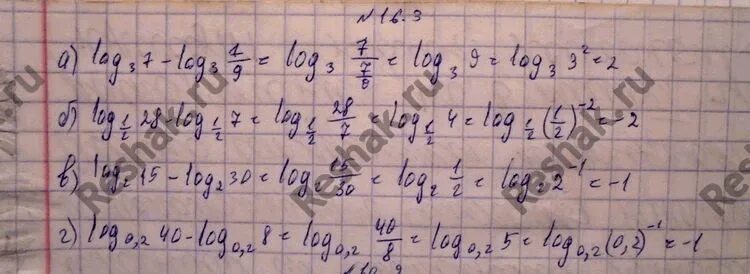 №16.3
а) log₃ 7 - log₃ 1/9 = log₃ 7/(7/9) = log₃ 9 = log₃ 3² = 2
б) log_{1/2} 28 - log_{1/2} 7 = log_{1/2} 28/7 = log_{1/2} 4 = log_{1/2} (1/2)⁻² = -2
в) log₂ 15 - log₂ 30 = log₂ 15/30 = log₂ 1/2 = log₂ 2⁻¹ = -1
г) log₀,₂ 40 - log₀,₂ 8 = log₀,₂ 40/8 = log₀,₂ 5 = log₀,₂ (0,2)⁻¹ = -1
Reshak.ru
Reshak.ru
Reshak.ru